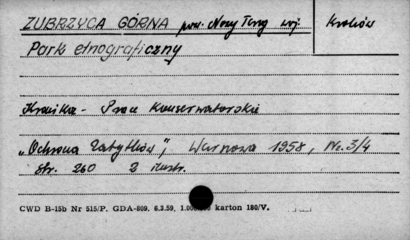 ZUBRZYCA GÓRNA pow. Nowy Targ woj. Kraków
Park etnograficzny
Kronika - Prace Konserwatorskie
„Ochrona Zabytków", Warszawa 1958, Nr. 3/4
str. 260 2 ilustr.
CWD B-15b Nr 515/P. GDA-809. 6.3.59. karton 180/V.